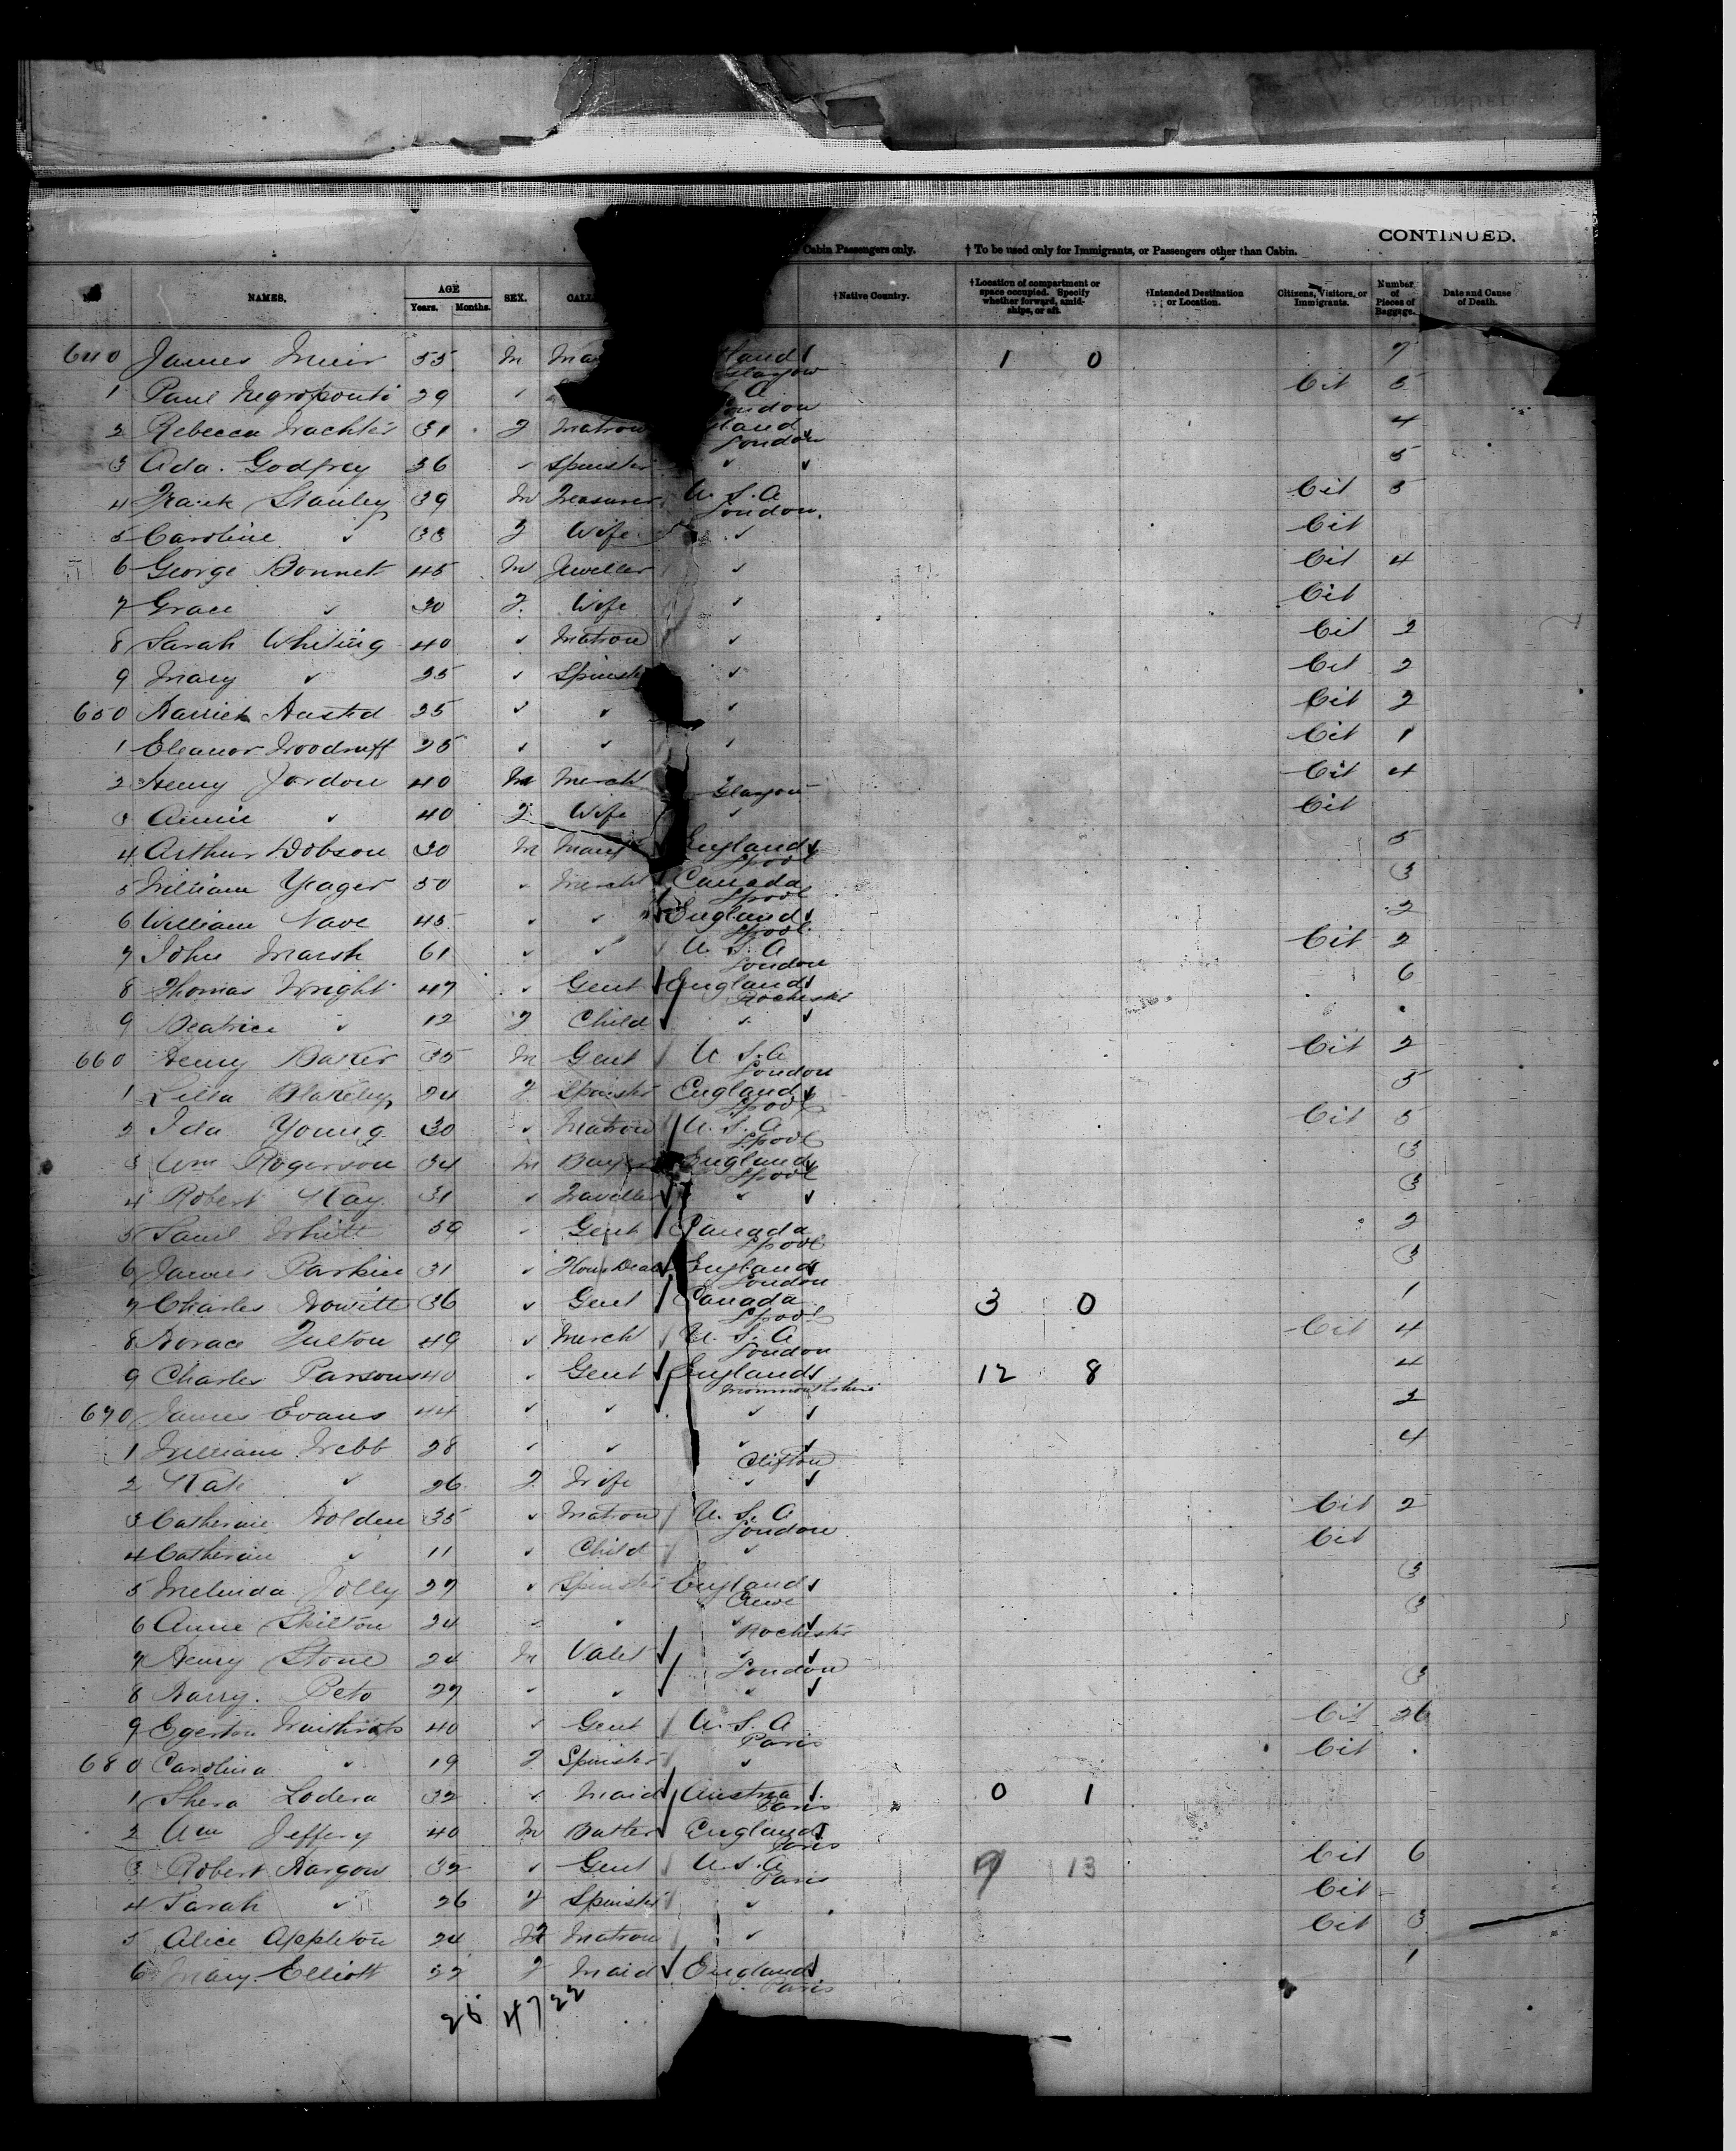 CONTINUED.
Cabin Passengers only. † To be used only for Immigrants, or Passengers other than Cabin.
NAMES. AGE Years. Months. SEX. †Native Country. †Location of compartment or space occupied. Specify whether forward, amidships, or aft. †Intended Destination or Location. Citizens, Visitors, or Immigrants. Number of Pieces of Baggage. Date and Cause of Death.
640 James Muir 55 M 1 0 7
Glasgow
1 Paul Negroponti 29 ✓ A Cit 5
London
2 Rebecca 31 F Matron 4
London
3 Ada Godfrey 36 ✓ Spinster ✓ ✓ 5
4 Frank Stanley 39 M Treasurer U.S.A Cit 5
London
5 Caroline ✓ 33 F Wife ✓ Cit
6 George Bonnet 45 M Jeweller ✓ Cit 4
7 Grace ✓ 30 F Wife ✓ Cit
8 Sarah Whiting 40 ✓ Matron ✓ Cit 2
9 Mary ✓ 25 ✓ Spinster ✓ Cit 2
650 Harriet Husted 25 ✓ ✓ ✓ Cit 2
1 Eleanor Woodruff 25 ✓ ✓ ✓ Cit 1
2 Henry Jordon 40 M Mercht Glasgow Cit 4
3 Annie ✓ 40 F Wife ✓ Cit
4 Arthur Dobson 30 M Manf England 5
Lpool
5 William Yeager 50 ✓ Mercht Canada 3
Lpool
6 William Nave 45 ✓ ✓ England 2
Lpool
7 John Marsh 61 ✓ ✓ U.S.A Cit 2
London
8 Thomas Wright 47 ✓ Gent England 6
Rochester
9 Beatrice ✓ 12 F Child ✓ ✓
660 Henry Baker 35 M Gent U.S.A Cit 2
London
1 Lilla Blakeley 24 F Spinster England 5
Lpool
2 Ida Young 30 ✓ Matron U.S.A Cit 5
Lpool
3 Wm Rogerson 34 M Buyer England 3
Lpool
4 Robert Kay 31 ✓ Traveller ✓ ✓ 3
5 Saml White 59 ✓ Gent Canada 2
Lpool
6 James Parkin 31 ✓ England 3
London
7 Charles Howitt 36 ✓ Gent Canada 3 0 1
Lpool
8 Horace Fulton 49 ✓ Mercht U.S.A Cit 4
London
9 Charles Parsons 40 ✓ Gent England 12 8 4
Monmouthshire
670 James Evans 44 ✓ ✓ ✓ ✓ 2
1 William Webb 28 ✓ ✓ ✓ ✓ 4
Clifton
2 Kate ✓ 26 F Wife ✓ ✓
3 Catherine Holden 35 ✓ Matron U.S.A Cit 2
London
4 Catherine ✓ 11 ✓ Child ✓ Cit
5 Melinda Jolly 27 ✓ Spinster England 3
Crewe
6 Annie Skilton 24 ✓ ✓ ✓ ✓ 3
Rochester
7 Henry Stone 24 M Valet ✓ ✓
London
8 Harry Peto 27 ✓ ✓ ✓ ✓ 3
9 Egerton 40 ✓ Gent U.S.A Cit 26
Paris
680 Carolina ✓ 19 F Spinster ✓ Cit
1 Shera Lodera 32 ✓ Maid Austria 0 1
Paris
2 Wm Jeffery 40 M Butler England
Paris
3 Robert Hargous 32 ✓ Gent U.S.A 9 13 Cit 6
Paris
4 Sarah ✓ 26 F Spinster ✓ Cit
5 Alice Appleton 24 F Matron ✓ Cit 3
6 Mary Elliott 22 F Maid England 1
Paris
25 47 22